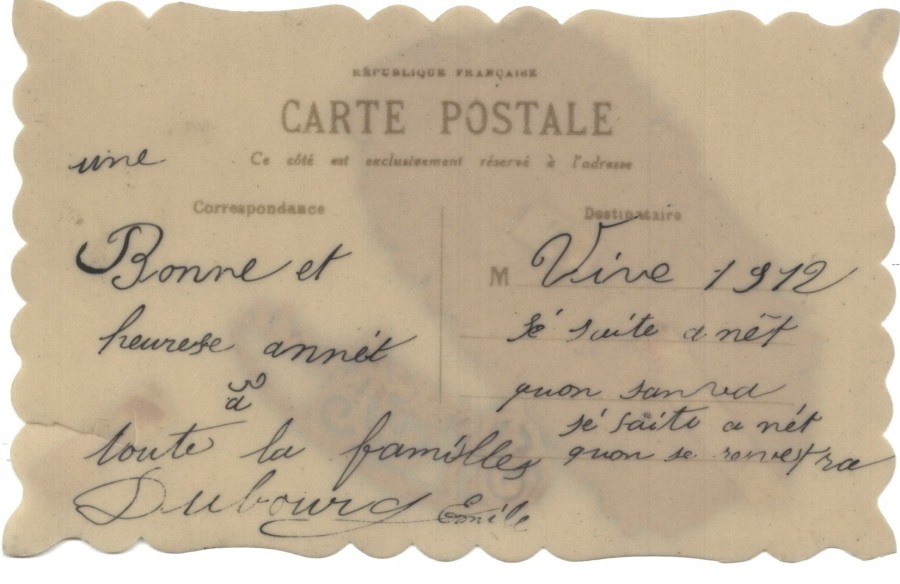 RÉPUBLIQUE FRANÇAISE
CARTE POSTALE
Ce côté est exclusivement réservé à l'adresse
Correspondance
une
Bonne et
heurese annét
à
toute la familles
Dubourg Emile
Destinataire
M Vive 1912
sé suite a nét
quon sanva
sé saite a nét
quon se